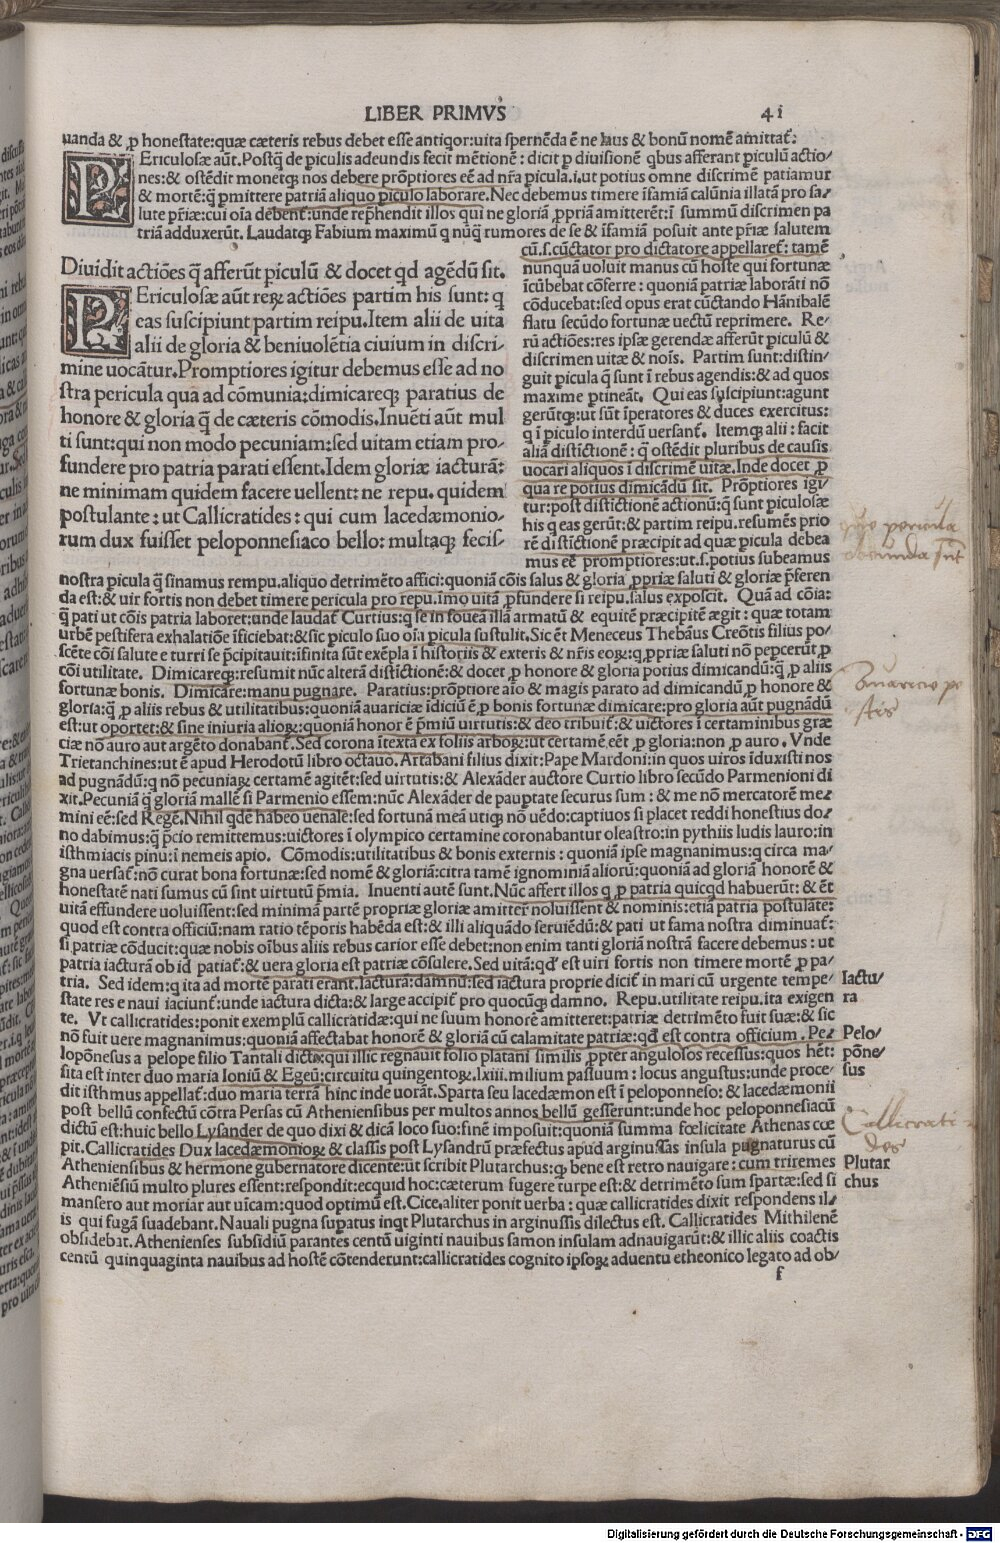 LIBER PRIMVS 41
uanda & ꝓ honestate:quæ cæteris rebus debet esse antiqor:uita spernẽda ẽ ne laus & bonũ nomẽ amittat̃:
PEriculosæ aũt. Postq̃ de piculis adeundis fecit mẽtionẽ: dicit ꝑ diuisionẽ qbus afferant piculũ actio/
nes:& ostẽdit monetqꝫ nos debere prõptiores eẽ ad nr̃a picula.i.ut potius omne discrimẽ patiamur
& mortẽ:q̃ pmittere patriã aliquo piculo laborare. Nec debemus timere ifamiã calũnia illatã pro sa/
lute pr̃iæ:cui oĩa debent̃:unde rep̃hendit illos qui ne gloriã ꝓpriã amitterẽt:ĩ summũ discrimen pa
triã adduxerũt. Laudatqꝫ Fabium maximũ q nũq̃ rumores de se & ĩfamiã posuit ante pr̃iæ salutem
cũ.s.cũctator pro dictatore appellaret̃: tamẽ
nunquã uoluit manus cũ hoste qui fortunæ
ĩcũbebat cõferre: quoniã patriæ laborãti nõ
cõducebat:sed opus erat cũctando Hãnibalẽ
flatu secũdo fortunæ uectũ reprimere. Re/
rũ actiões:res ipsæ gerendæ afferũt piculũ &
discrimen uitæ & nois. Partim sunt:distin/
guit picula q̃ sunt ĩ rebus agendis:& ad quos
maxime ptineãt. Qui eas suscipiunt:agunt
gerũtqꝫ:ut sũt ĩperatores & duces exercitus:
q ĩ piculo interdũ uersant̃. Itemqꝫ alii: facit
aliã distictionẽ: q̃ ostẽdit pluribus de causis
uocari aliquos ĩ discrimẽ uitæ. Inde docet ꝓ
qua re potius dimicãdũ sit. Prõptiores igi/
tur:post distictionẽ actionũ:q̃ sunt piculosæ
his q eas gerũt:& partim reipu.resumẽs prio
rẽ distictionẽ præcipit ad quæ picula debea
mus eẽ promptiores:ut.s.potius subeamus
Diuidit actiões q̃ afferũt piculũ & docet qd agẽdũ sit.
PEriculosæ aũt reꝝ actiões partim his sunt: q
eas suscipiunt partim reipu.Item alii de uita
alii de gloria & beniuolẽtia ciuium in discri/
mine uocãtur.Promptiores igitur debemus esse ad no
stra pericula qua ad cõmunia:dimicareqꝫ paratius de
honore & gloria q̃ de cæteris cõmodis.Inuẽti aũt mul
ti sunt:qui non modo pecuniam:sed uitam etiam pro/
fundere pro patria parati essent.Idem gloriæ iacturã:
ne minimam quidem facere uellent: ne repu. quidem
postulante: ut Callicratides: qui cum lacedæmonio/
rum dux fuisset peloponnesiaco bello: multaqꝫ fecis/
nostra picula q̃ sinamus rempu.aliquo detrimẽto affici:quoniã cõis salus & gloria ꝓpriæ saluti & gloriæ p̃feren
da est:& uir fortis non debet timere pericula pro repu.ĩmo uitã ꝓfundere si reipu.salus exposcit. Quã ad cõia:
q̃ pati ut cõis patria laboret:unde laudat̃ Curtius:q se in foueã illã armatũ & equitẽ præcipitẽ ægit: quæ totam
urbẽ pestifera exhalatiõe ĩficiebat:& sic piculo suo oĩa picula sustulit.Sic ẽt Meneceus Thebãus Creõtis filius po/
scẽte cõi salute e turri se p̃cipitauit:ĩfinita sũt exẽpla ĩ historiis & exteris & nr̃is eoꝝ:q ꝓpriæ saluti nõ pepcerũt ꝓ
cõi utilitate. Dimicareqꝫ:resumit nũc alterã distictionẽ:& docet ꝓ honore & gloria potius dimicandũ:q̃ ꝓ aliis
fortunæ bonis. Dimicare:manu pugnare. Paratius:prõptiore aio & magis parato ad dimicandũ ꝓ honore &
gloria:q̃ ꝓ aliis rebus & utilitatibus:quoniã auariciæ ĩdiciũ ẽ ꝓ bonis fortunæ dimicare:pro gloria aũt pugnãdũ
est:ut oportet:& sine iniuria alioꝝ:quoniã honor ẽ p̃miũ uirtutis:& deo tribuit̃:& uictores ĩ certaminibus græ
ciæ nõ auro aut argẽto donabant̃. Sed corona ĩtexta ex foliis arboꝝ:ut certamẽ eẽt ꝓ gloria:non ꝓ auro. Vnde
Trietanchines:ut ẽ apud Herodotũ libro octauo. Artabani filius dixit:Pape Mardoni:in quos uiros ĩduxisti nos
ad pugnãdũ:q nõ pecuniaꝝ certamẽ agitẽt:sed uirtutis:& Alexãder auctore Curtio libro secũdo Parmenioni di
xit.Pecuniã q̃ gloriã mallẽ si Parmenio essem:nũc Alexãder de pauptate securus sum: & me nõ mercatorẽ me/
mini eẽ:sed Regẽ.Nihil qdẽ habeo uenale:sed fortunã meã utiqꝫ nõ uẽdo:captiuos si placet reddi honestius do/
no dabimus:q̃ p̃cio remittemus:uictores ĩ olympico certamine coronabantur oleastro:in pythiis ludis lauro:in
isthmiacis pinu:ĩ nemeis apio. Cõmodis:utilitatibus & bonis externis: quoniã ipse magnanimus:q circa ma/
gna uersat̃:nõ curat bona fortunæ:sed nomẽ & gloriã:citra tamẽ ignominiã alioꝝ:quoniã ad gloriã honorẽ &
honestatẽ nati sumus cũ sint uirtutũ p̃mia. Inuenti autẽ sunt.Nũc affert illos q ꝓ patria quicqd habuerũt: & ẽt
uitã effundere uoluissent:sed minimã partẽ propriæ gloriæ amittere noluissent & nominis:etiã patria postulate:
quod est contra officiũ:nam ratio tẽporis habẽda est:& illi aliquãdo seruiẽdũ:& pati ut fama nostra diminuat̃:
si patriæ cõducit:quæ nobis oĩbus aliis rebus carior esse debet:non enim tanti gloriã nostrã facere debemus: ut
patria iacturã ob id patiat̃:& uera gloria est patriæ cõsulere. Sed uitã:qd est uiri fortis non timere mortẽ ꝓ pa/
tria. Sed idem:q ita ad mortẽ parati erant.Iacturã:damnũ:sed iactura proprie dicit̃ in mari cũ urgente tempe/
state res e naui iaciunt̃:unde iactura dicta:& large accipit̃ pro quocũqꝫ damno. Repu.utilitate reipu.ita exigen
te. Vt callicratides:ponit exemplũ callicratidæ:qui ne suum honorẽ amitteret:patriæ detrimẽto fuit suæ:& sic
nõ fuit uere magnanimus:quoniã affectabat honorẽ & gloriã cũ calamitate patriæ:qd est contra officium. Pe/
loponesus a pelope filio Tantali dicta:qui illic regnauit folio platani similis ꝓpter angulosos recessus:quos hẽt:
sita est inter duo maria Ioniũ & Egeũ:circuitu quingentoꝝ.lxiii.milium passuum: locus angustus:unde proce/
dit isthmus appellat̃:duo maria terrã hinc inde uorãt.Sparta seu lacedæmon est ĩ peloponneso: & lacedæmonii
post bellũ confectũ cõtra Persas cũ Atheniensibus per multos annos bellũ gesserunt:unde hoc peloponesiacũ
dictũ est:huic bello Lysander de quo dixi & dicã loco suo:finẽ imposuit:quoniã summa fœlicitate Athenas cœ
pit.Callicratides Dux lacedæmonioꝝ & classis post Lysandrũ præfectus apud arginussas insula pugnaturus cũ
Atheniensibus & hermone gubernatore dicente:ut scribit Plutarchus:qꝫ bene est retro nauigare: cum triremes
Atheniẽsiũ multo plures essent:respondit:ecquid hoc:cæterum fugere turpe est:& detrimẽto sum spartæ:sed si
mansero aut moriar aut uicam:quod optimũ est.Cice.aliter ponit uerba: quæ callicratides dixit respondens il/
is qui fugã suadebant. Nauali pugna supatus inqt Plutarchus in arginussis dilectus est. Callicratides Mithilenẽ
obsidebat.Athenienses subsidiũ parantes centũ uiginti nauibus samon insulam adnauigarũt:& illic aliis coactis
centũ quinquaginta nauibus ad hostẽ cõtenderunt:callicratides cognito ipsoꝝ aduentu etheonico legato ad ob/
f
Iactu/
ra
Pelo/
põne/
sus
Plutar
chus
pericula
Callicrati
des
Digitalisierung gefördert durch die Deutsche Forschungsgemeinschaft - DFG